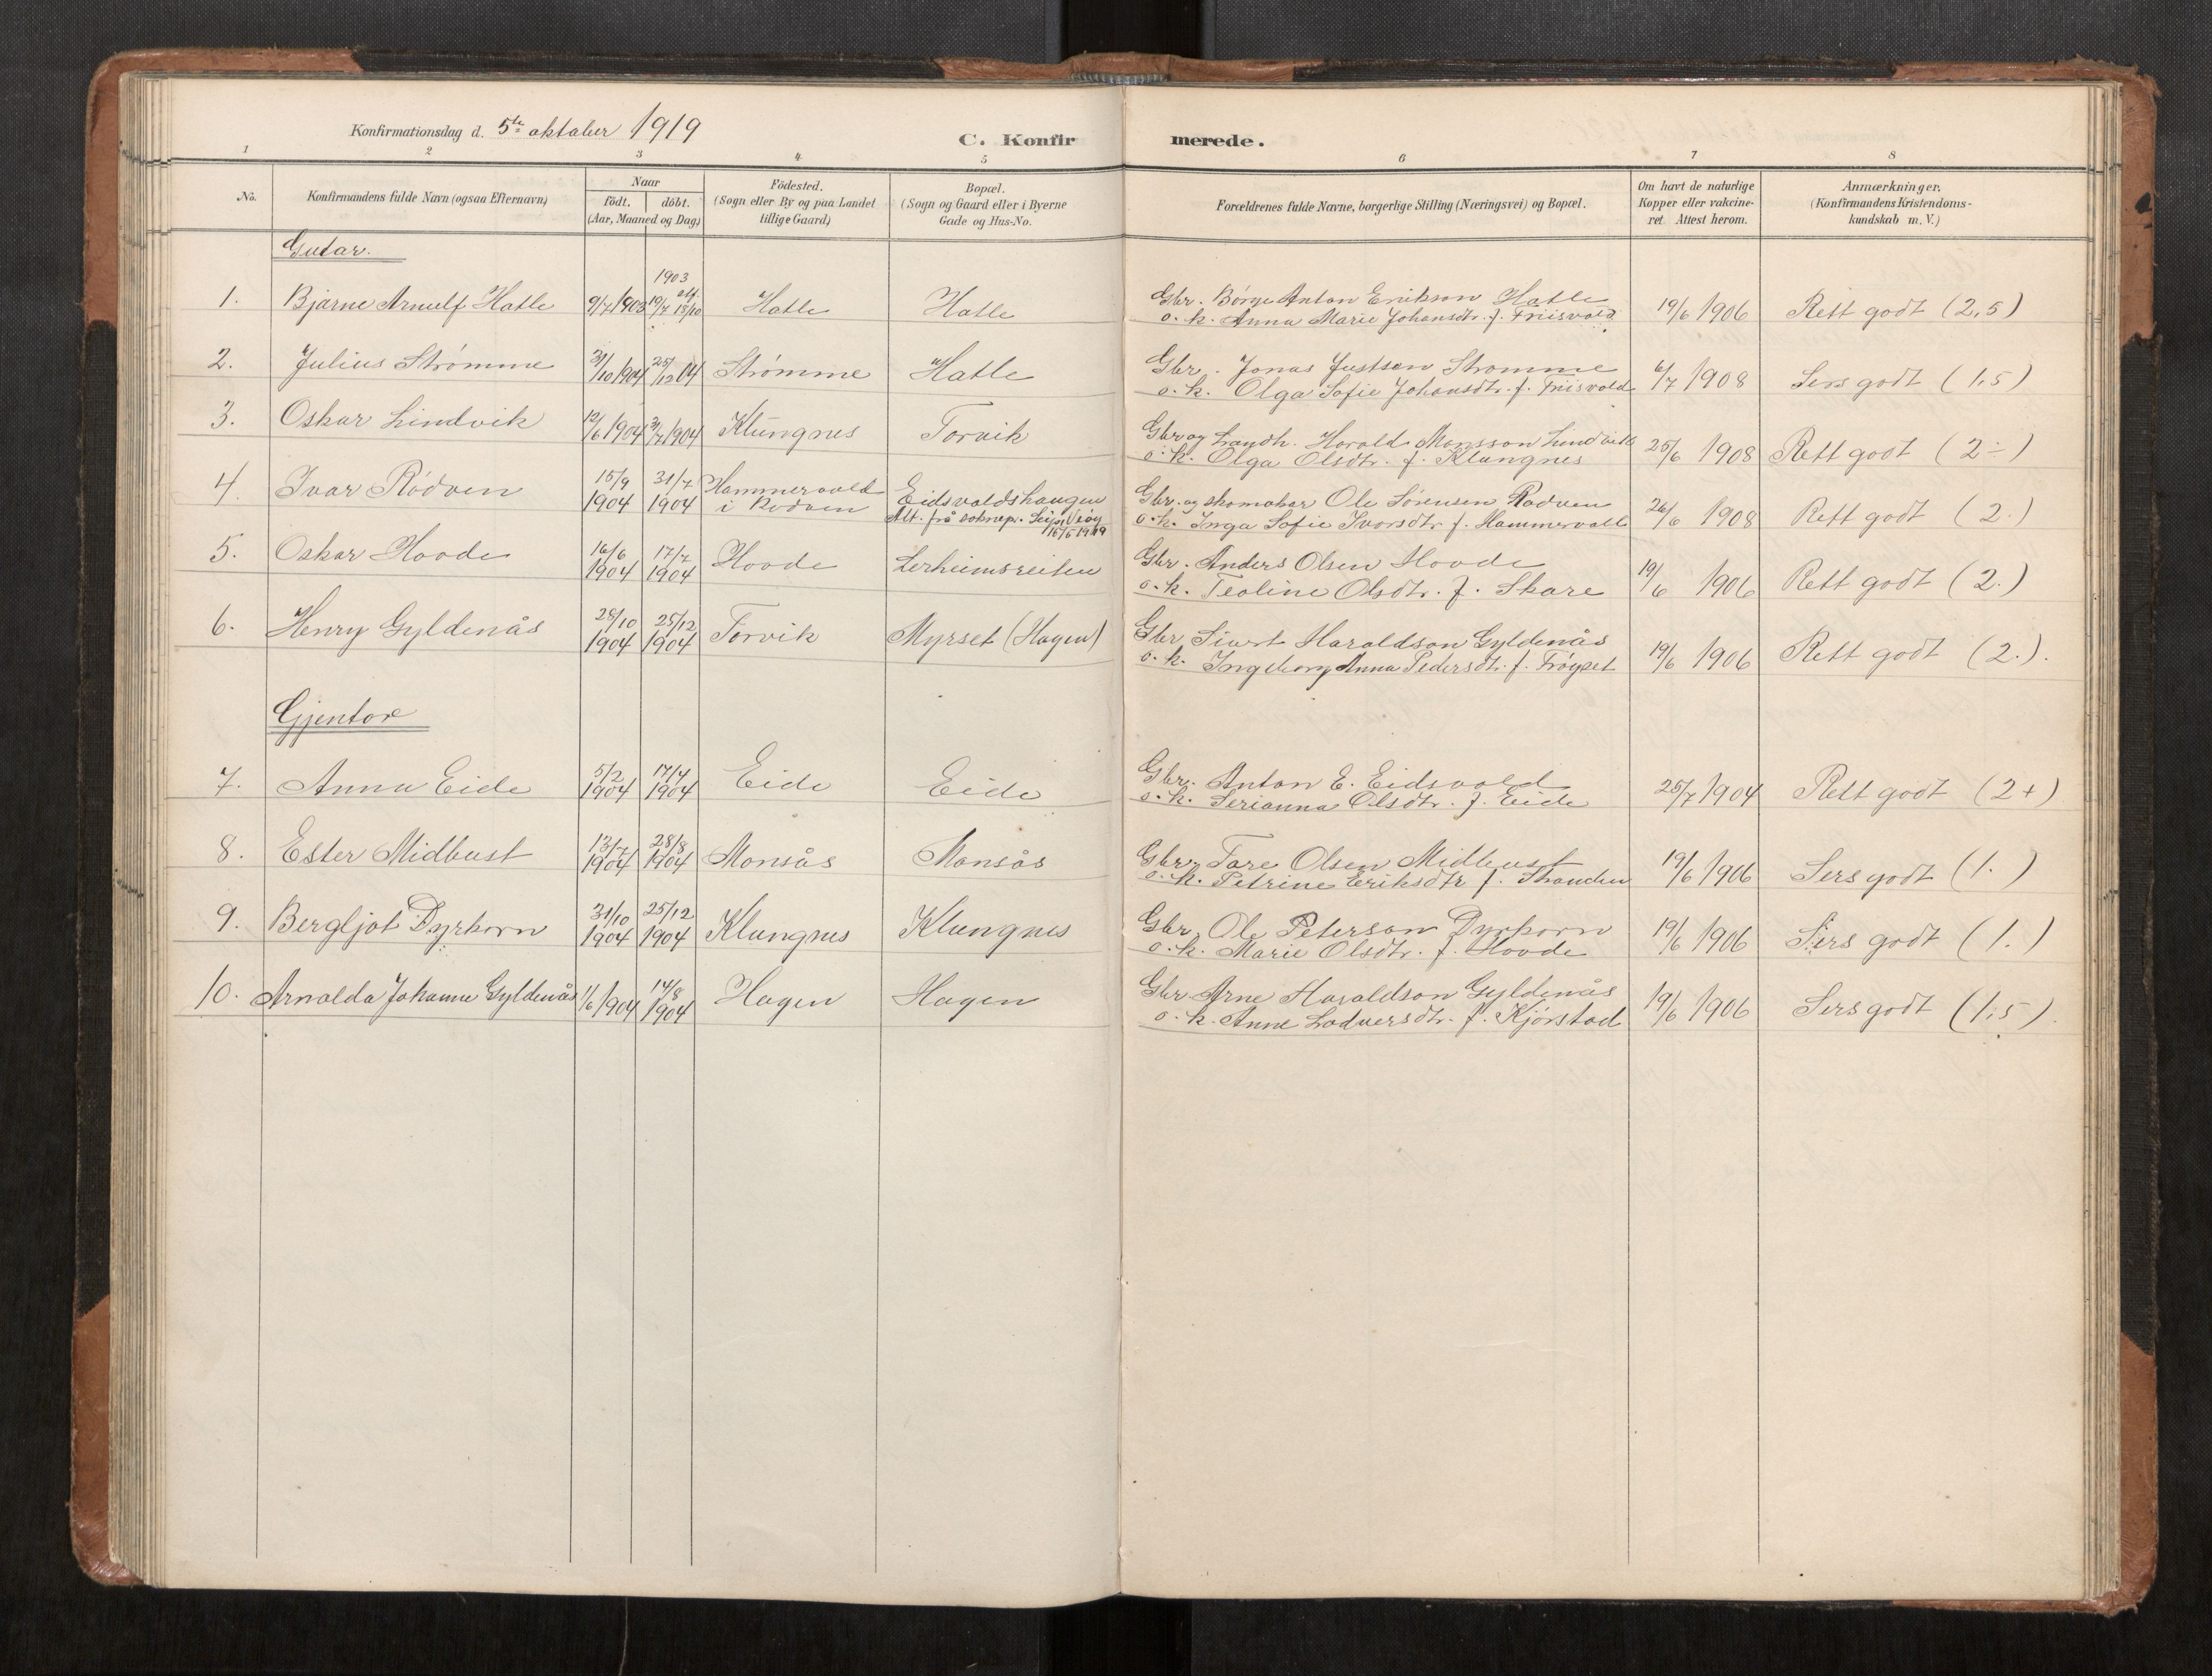 Konfirmationsdag d. 5te oktober 1919
C. Konfir merede.
1 2 3 4 5 6 7 8
No.
Konfirmandens fulde Navn (ogsaa Efternavn)
Naar
födt. döbt.
(Aar, Maaned og Dag)
Födested.
(Sogn eller By og paa Landet
tillige Gaard)
Bopæl.
(Sogn og Gaard eller i Byerne
Gade og Hus-No.
Forældrenes fulde Navne, borgerlige Stilling (Næringsvei) og Bopæl.
Om havt de naturlige
Kopper eller vakcine-
ret. Attest herom.
Anmærkninger,
(Konfirmandens Kristendoms-
kundskab m. V.)
Gutar.
1. Bjarne Arnulf Hatle 9/7 1903 1903 19/7 Hatle Hatle Gbr. Børge Anton Erikson Hatle 19/6 1906 Rett godt (2,5)
o. k. Anna Marie Johansdtr. f. Friisvold
2. Julius Strømme 31/10 1904 25/12 04 Strømme Hatle Gbr. Jonas Justsen Strømme 6/7 1908 Sers godt (1,5)
o. k. Olga Sofie Johansdtr. f. Friisvold
3. Oskar Lindvik 12/6 1904 31/7 1904 Klungnes Torvik Gbr og Landh. Harald Monsson Lindvik 25/6 1908 Rett godt (2÷)
o. k. Olga Olsdtr. f. Klungnes
4. Ivar Rødven 15/9 1904 31/7 1904 Hammervold i Rødven Eidsvoldshaugen Gbr. og skomaker Ole Sørensen Rødven 26/6 1908 Rett godt (2.)
Att. frå soknepr. 15/5 1919 o. k. Inga Sofie Ivarsdtr. f. Hammervold
5. Oskar Hovde 16/6 1904 17/7 1904 Hovde Lerheimsreiten Gbr. Anders Olsen Hovde 19/6 1906 Rett godt (2.)
o. k. Teoline Olsdtr. f. Skare
6. Henry Gyldenås 28/10 1904 25/12 1904 Torvik Myrset (Hagen) Gbr Sivert Haraldson Gyldenås 19/6 1906 Rett godt (2.).
o. k. Ingeborg Anna Pedersdtr. f. Frøyset
Gjentor
7. Anna Eide 5/2 1904 17/4 1904 Eide Eide Gbr. Anton E. Eidsvold 25/7 1904 Rett godt (2+)
o. k. Serianna Olsdtr. f. Eide
8. Ester Midbust 13/7 1904 28/8 1904 Monsås Monsås Gbr. Tore Olsen Midbust 19/6 1906 Sers godt (1.)
o. k. Petrine Eriksdtr f. Stranden
9. Bergljot Dyrkorn 31/10 1904 25/12 1904 Klungnes Klungnes Gbr. Ole Peterson Dyrkorn 19/6 1906 Sers godt (1.)
o. k. Marie Olsdtr. f. Hovde
10. Arnolda Johanne Gyldenås 1/6 1904 14/8 1904 Hagen Hagen Gbr Arne Haraldson Gyldenås 19/6 1906 Sers godt (1,5).
o. k. Anne Ladversdtr. f. Kjørstad